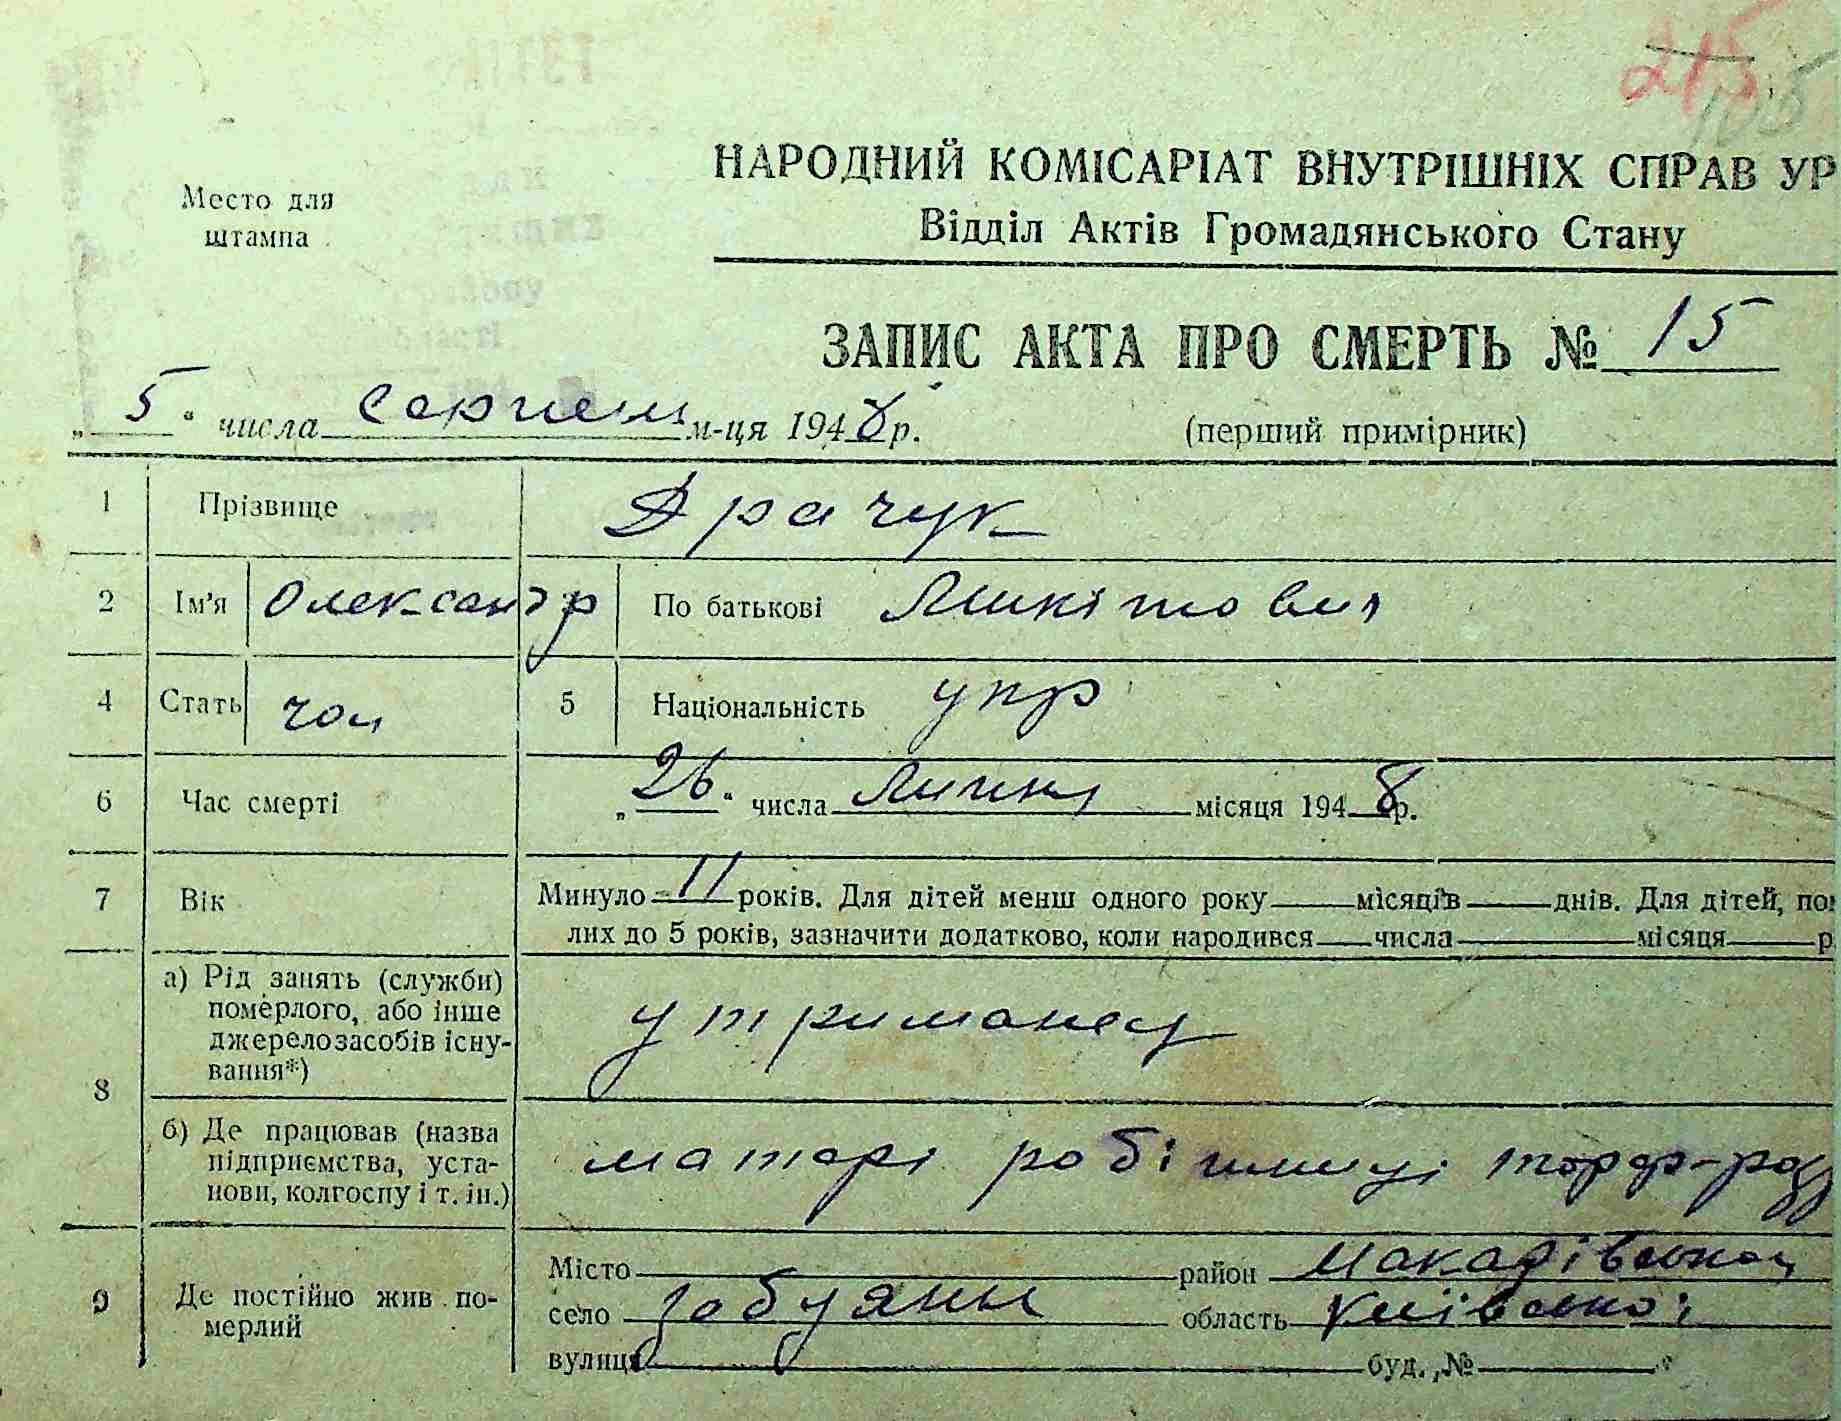 215
105
Место для
штампа
НАРОДНИЙ КОМІСАРІАТ ВНУТРІШНІХ СПРАВ УР
Відділ Актів Громадянського Стану
ЗАПИС АКТА ПРО СМЕРТЬ № 15
„5“ числа серпень м-ця 1948 р. (перший примірник)
1 Прізвище Драчук
2 Ім'я Олександр 3 По батькові Микітович
4 Стать чол 5 Національність укр
6 Час смерті „26“ числа липня місяця 1948 р.
7 Вік Минуло 11 років. Для дітей менш одного року — місяців — днів. Для дітей, пом
лих до 5 років, зазначити додатково, коли народився — числа — місяця — р
8 а) Рід занять (служби) померлого, або інше джерелозасобів існування*) утриманец
б) Де працював (назва підприємства, установи, колгоспу і т. ін.) матері робітниці торф-роз
9 Де постійно жив померлий Місто район Макарівської
село Забуяння область Київської
вулиця буд. №